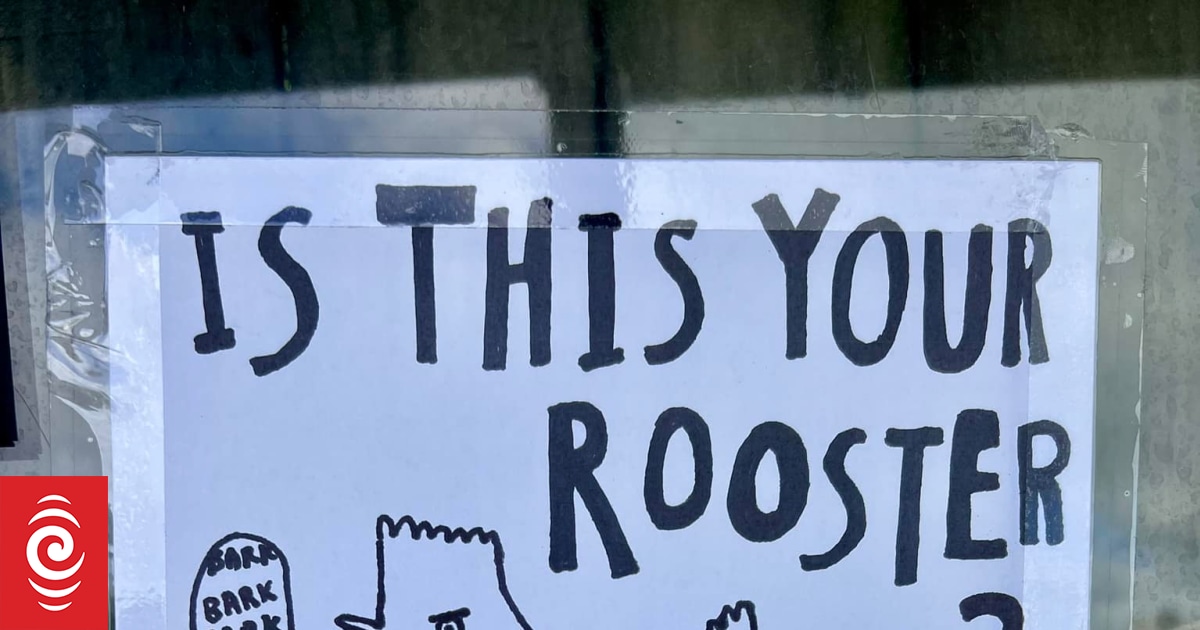 IS THIS YOUR
ROOSTER
?
BARK
BARK
BARK